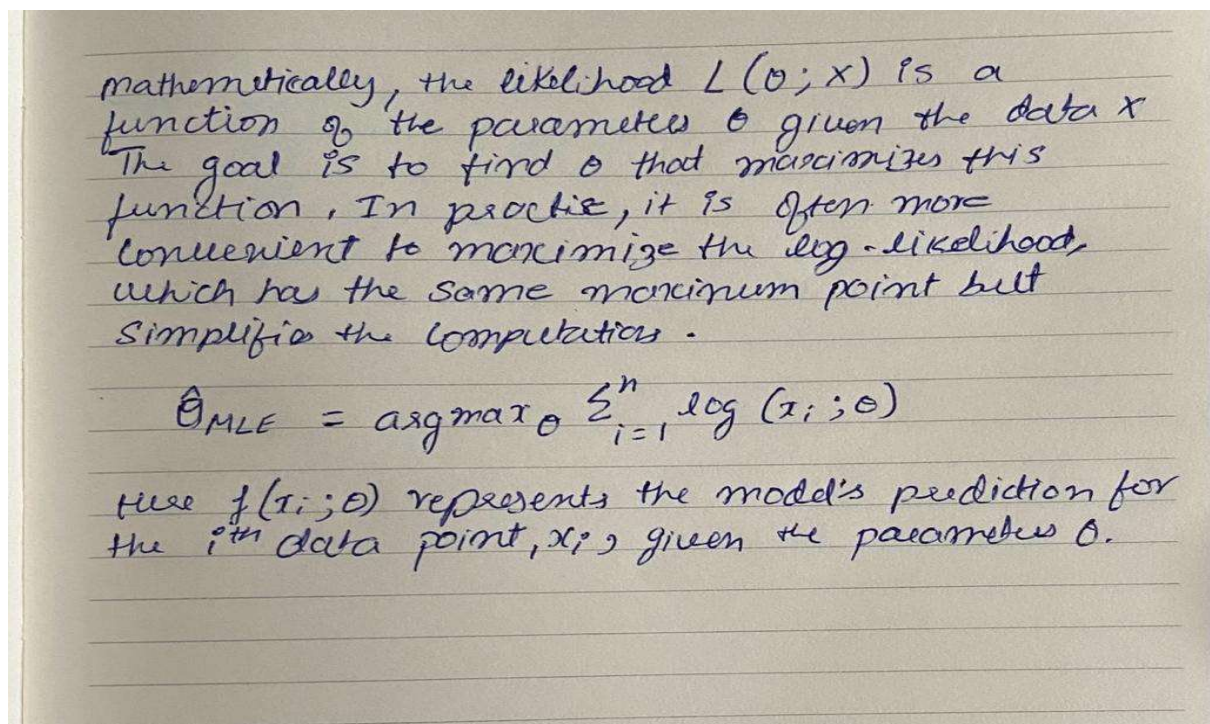 mathematically, the likelihood L (θ; x) is a
function of the parameters θ given the data x
The goal is to find θ that maximizes this
function, In practise, it is often more
convenient to maximize the log-likelihood,
which has the same maximum point but
Simplifies the computations.
θ̂ MLE = argmax θ Σⁿ i=1 log (xᵢ ; θ)
Here f(xᵢ; θ) represents the model's prediction for
the iᵗʰ data point, xᵢ, given the parameters θ.